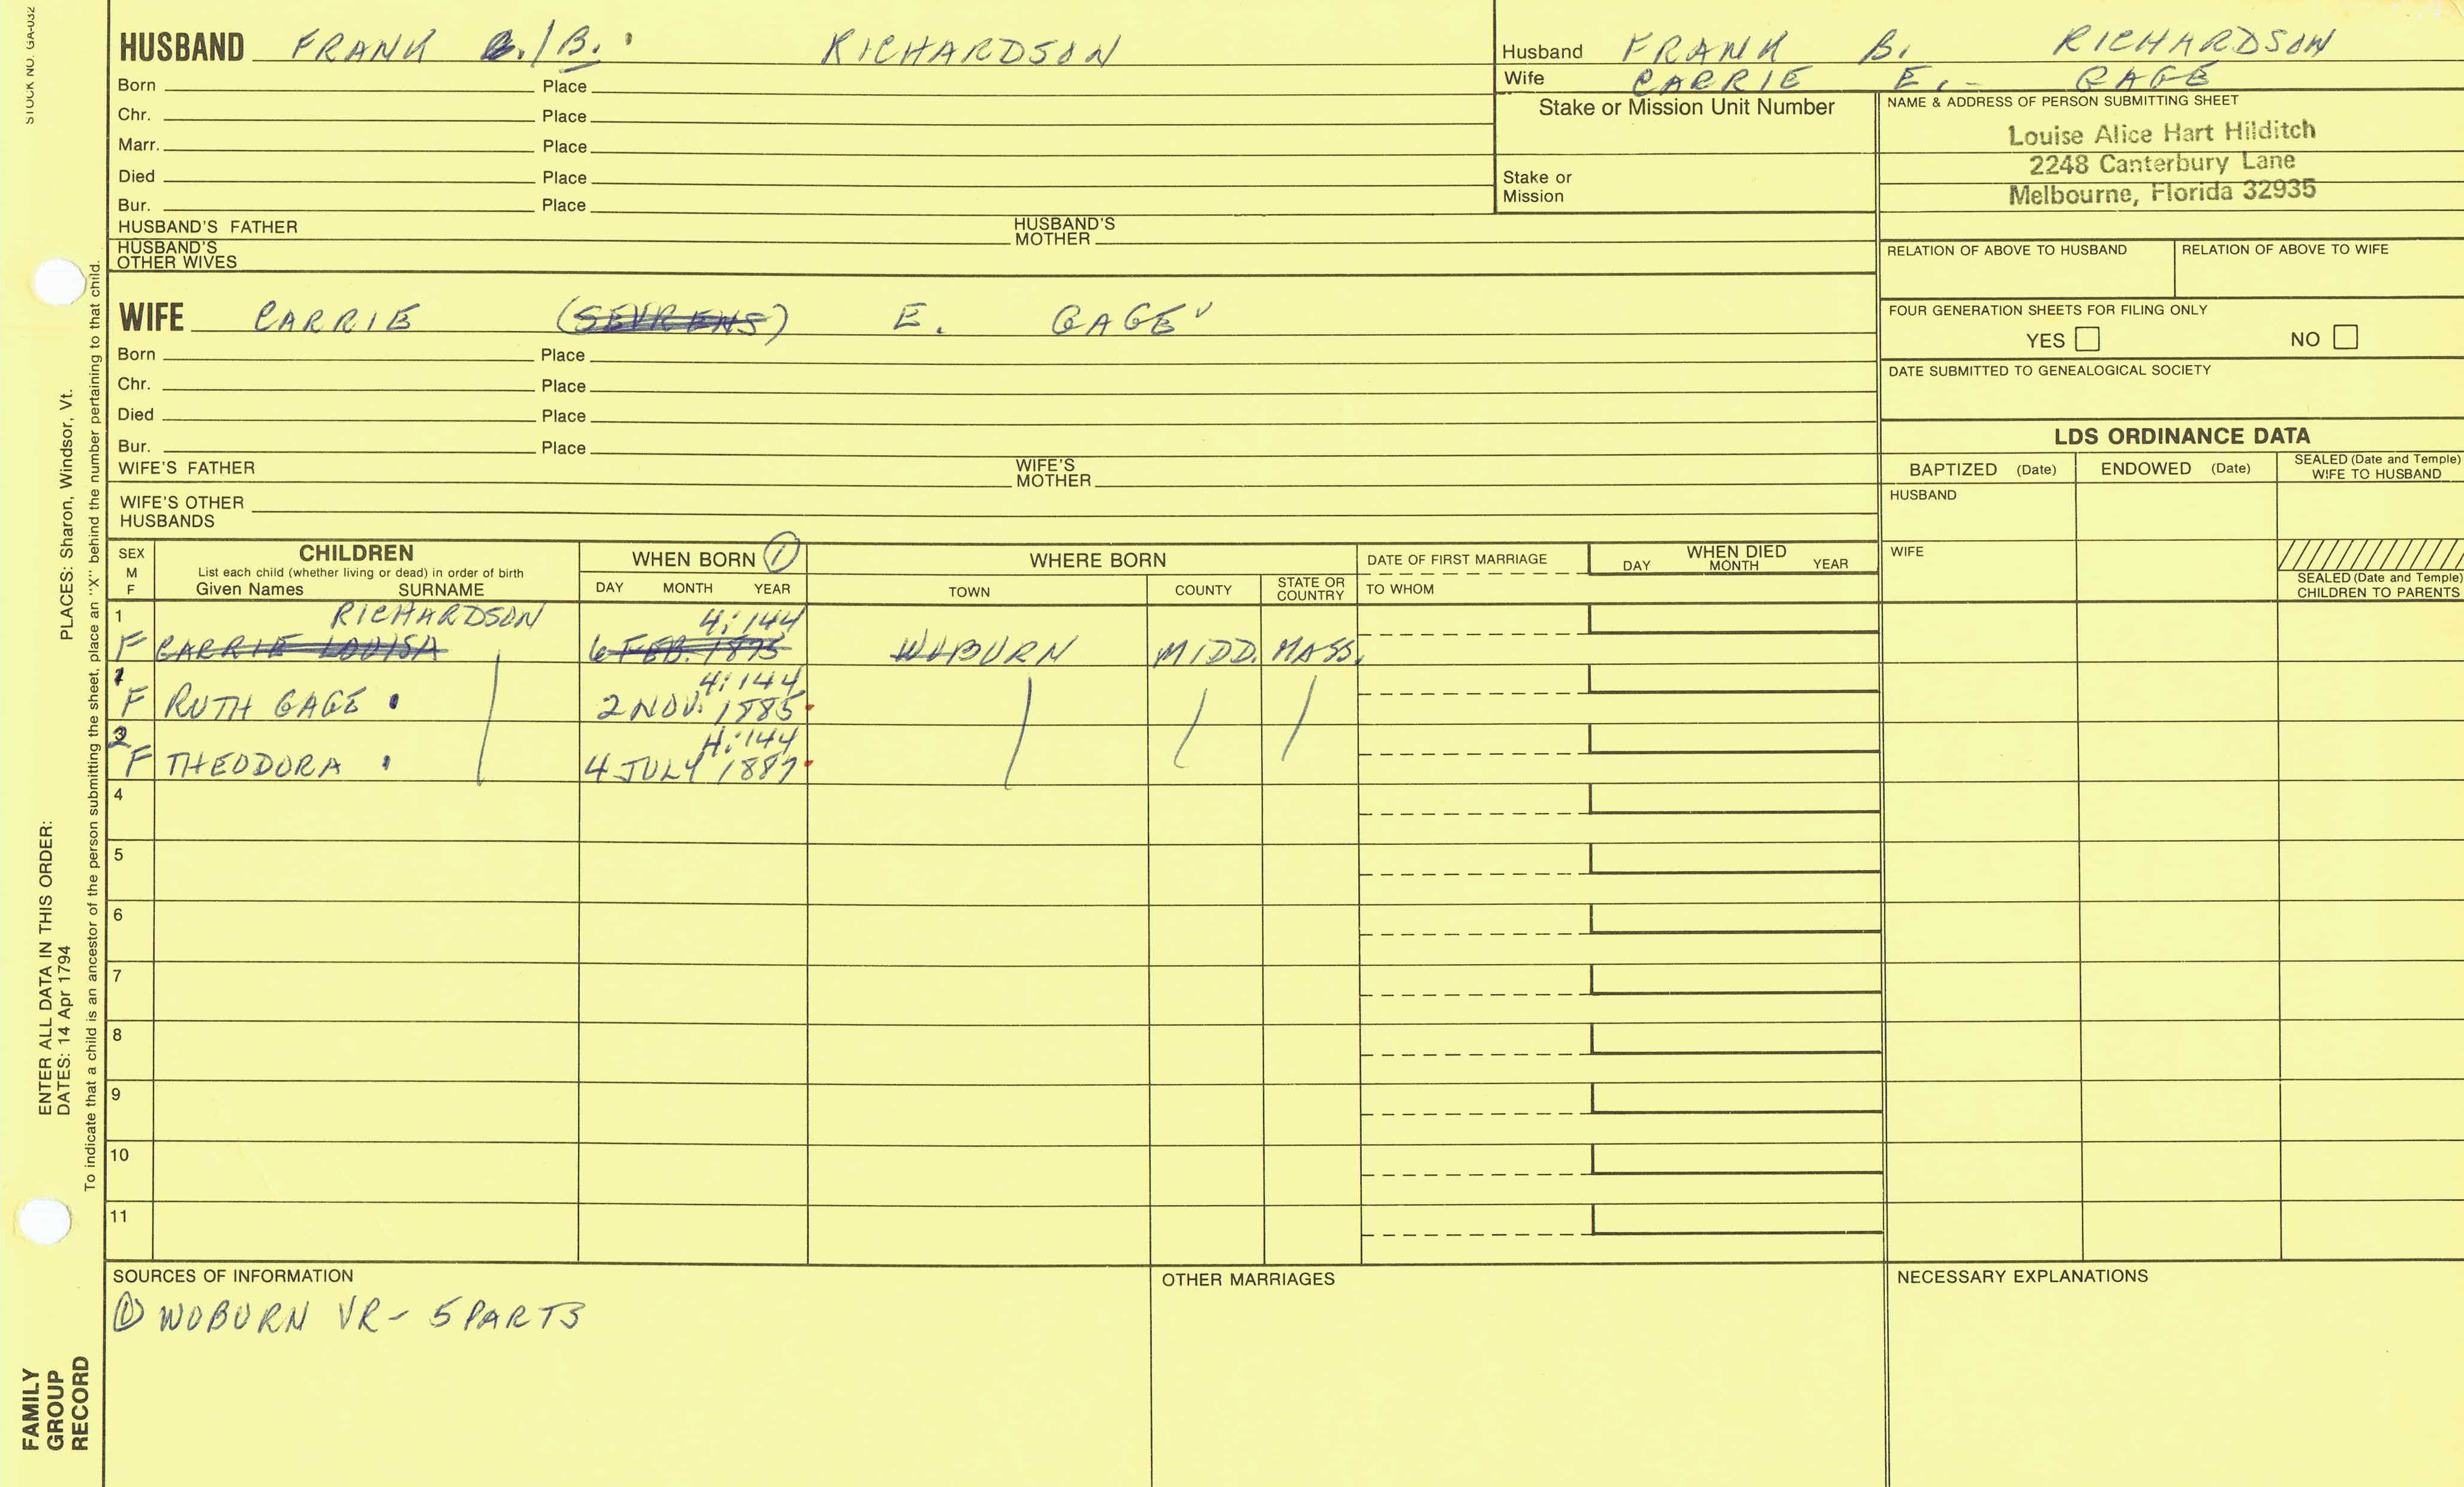 STOCK NO. GA-032
HUSBAND FRANK B./B. RICHARDSON
Born Place
Chr. Place
Marr. Place
Died Place
Bur. Place
HUSBAND'S FATHER HUSBAND'S MOTHER
HUSBAND'S OTHER WIVES
Husband FRANK B. RICHARDSON
Wife CARRIE E. - GAGE
Stake or Mission Unit Number
Stake or Mission
NAME & ADDRESS OF PERSON SUBMITTING SHEET
Louise Alice Hart Hilditch
2248 Canterbury Lane
Melbourne, Florida 32935
RELATION OF ABOVE TO HUSBAND RELATION OF ABOVE TO WIFE
FOUR GENERATION SHEETS FOR FILING ONLY
YES NO
DATE SUBMITTED TO GENEALOGICAL SOCIETY
WIFE CARRIE (SEVRENS) E. GAGE
Born Place
Chr. Place
Died Place
Bur. Place
WIFE'S FATHER WIFE'S MOTHER
WIFE'S OTHER HUSBANDS
LDS ORDINANCE DATA
BAPTIZED (Date) ENDOWED (Date) SEALED (Date and Temple) WIFE TO HUSBAND
HUSBAND
WIFE
SEALED (Date and Temple) CHILDREN TO PARENTS
SEX M F
CHILDREN
List each child (whether living or dead) in order of birth
Given Names SURNAME
WHEN BORN 1
DAY MONTH YEAR
WHERE BORN
TOWN COUNTY STATE OR COUNTRY
DATE OF FIRST MARRIAGE
TO WHOM
WHEN DIED
DAY MONTH YEAR
1 RICHARDSON 4:144
F CARRIE LOUISA 6 FEB. 1875 WOBURN MIDD. MASS.
1 4:144
F RUTH GAGE 2 NOV. 1885
2 4:144
F THEODORA 4 JULY 1887
4
5
6
7
8
9
10
11
SOURCES OF INFORMATION
1 WOBURN VR - 5 PARTS
OTHER MARRIAGES
NECESSARY EXPLANATIONS
PLACES: Sharon, Windsor, Vt.
ENTER ALL DATA IN THIS ORDER:
DATES: 14 Apr 1794
To indicate that a child is an ancestor of the person submitting the sheet, place an "X" behind the number pertaining to that child.
FAMILY
GROUP
RECORD